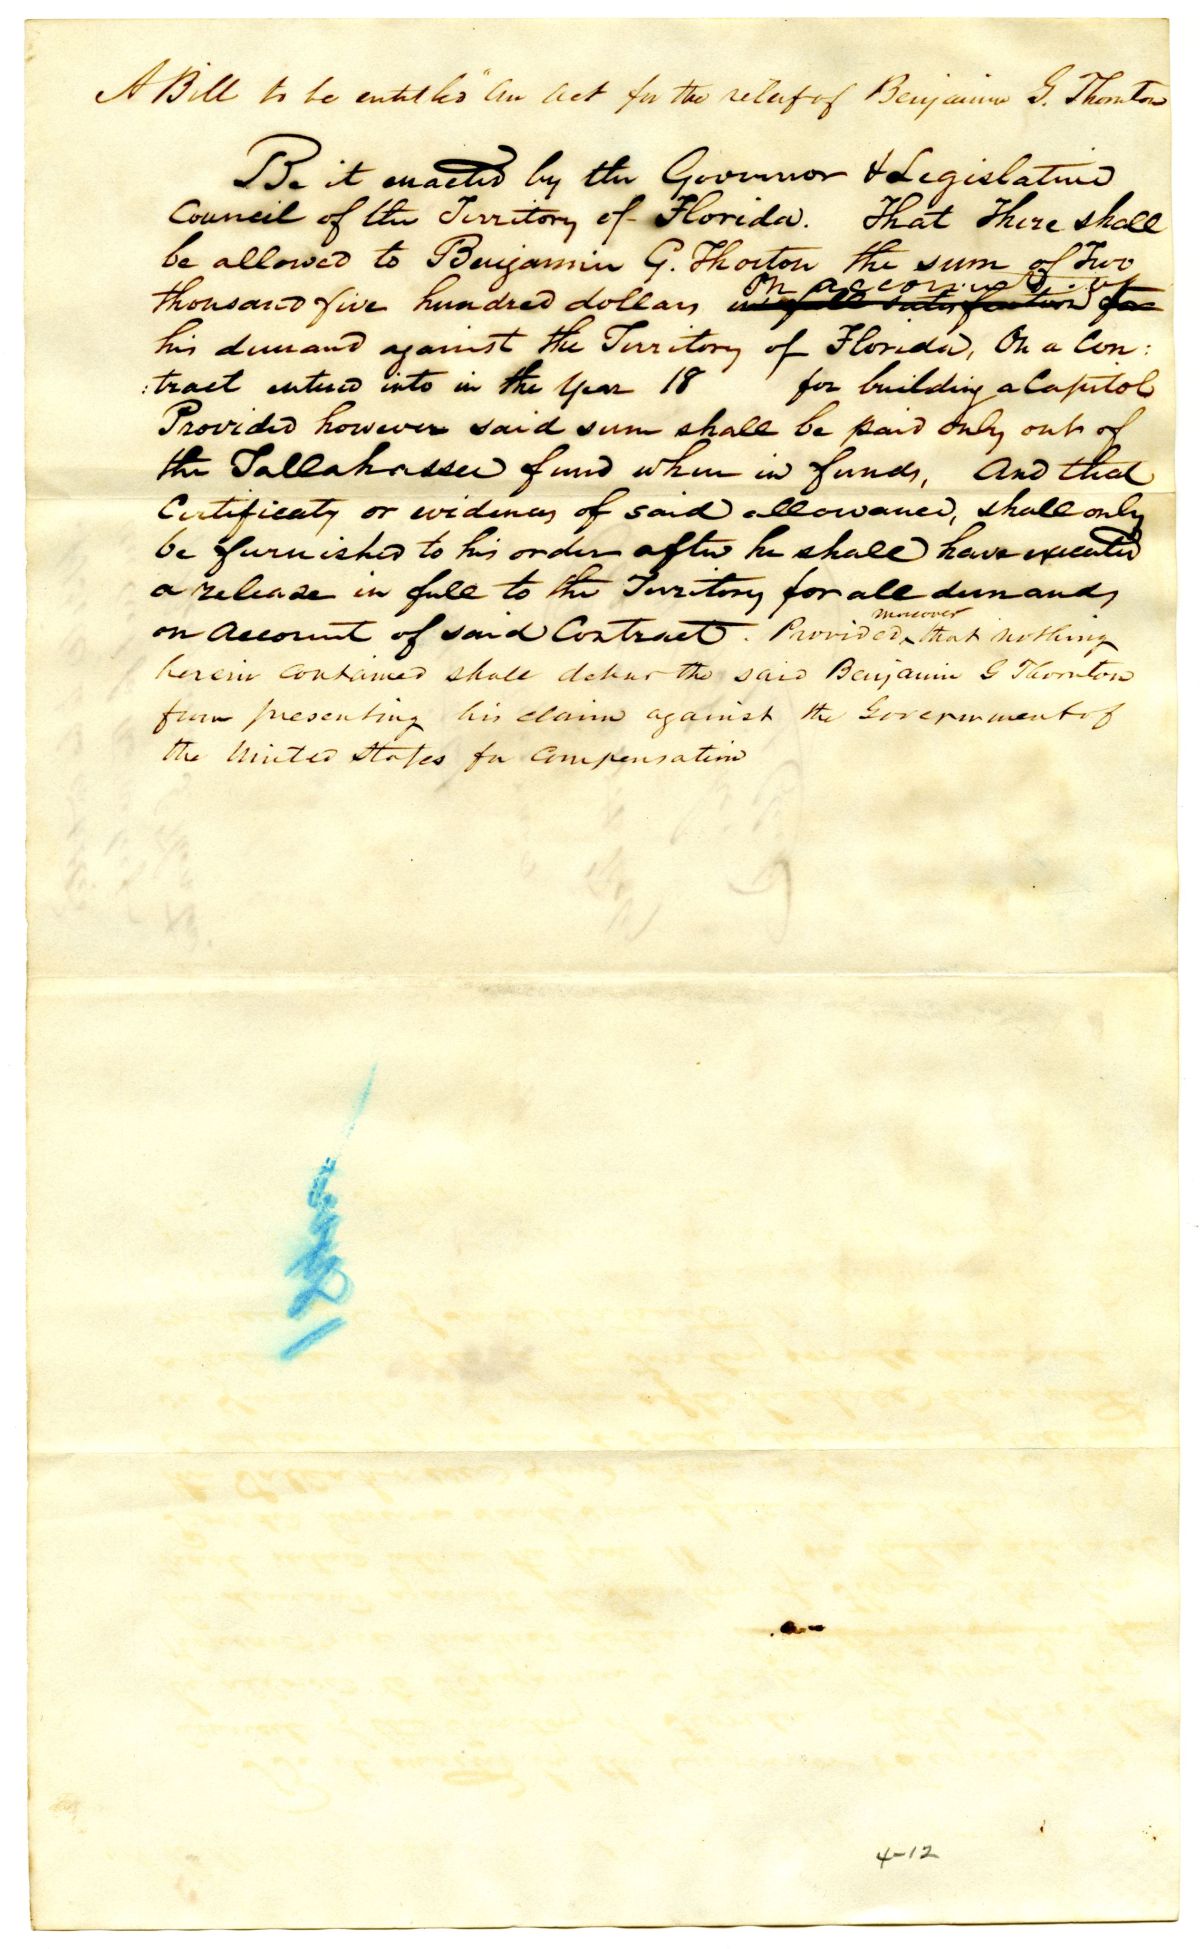 A Bill to be entitled "An act for the relief of Benjamin G. Thornton
Be it enacted by the Governor & Legislative
Council of the Territory of Florida. That There shall
be allowed to Benjamin G. Thorton the sum of Two
On account of
thousand five hundred dollars in full satisfaction for
his demand against the Territory of Florida, On a Con:
:tract entered into in the year 18 for building a Capitol
Provided however said sum shall be paid only out of
the Tallahassee fund when in funds, And that
Certificates or evidences of said allowance, shall only
be furnished to his order after he shall have executed
a release in full to the Territory for all demands
on account of said Contract. Provided,
moreover
that nothing
herein contained shall debar the said Benjamin G Thornton
from presenting his claim against the Government of
the United States for compensation
4-12